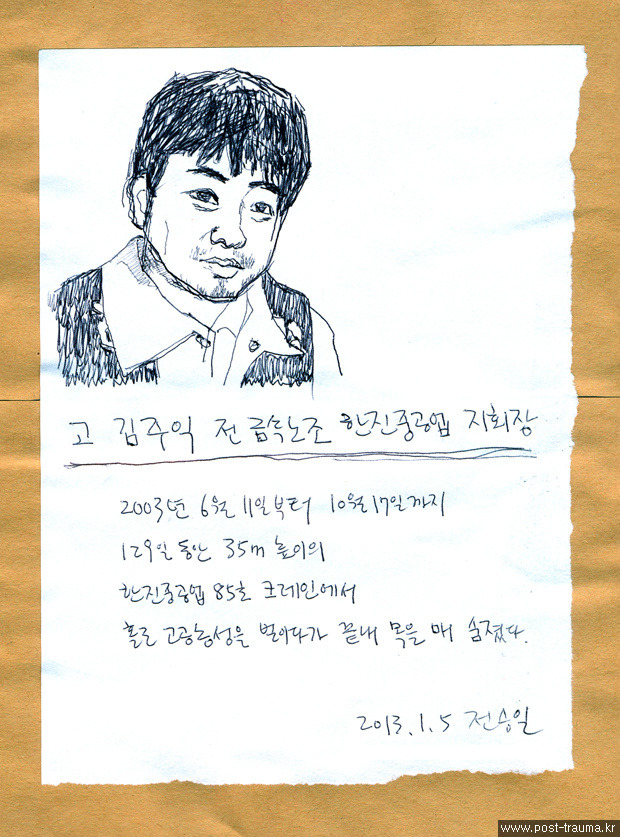 고 김주익 전 금속노조 한진중공업 지회장
2003년 6월 11일부터 10월 17일까지
129일 동안 35m 높이의
한진중공업 85호 크레인에서
홀로 고공농성을 벌이다가 끝내 목을 매 숨졌다.
2013.1.5 전승일
www.post-trauma.kr